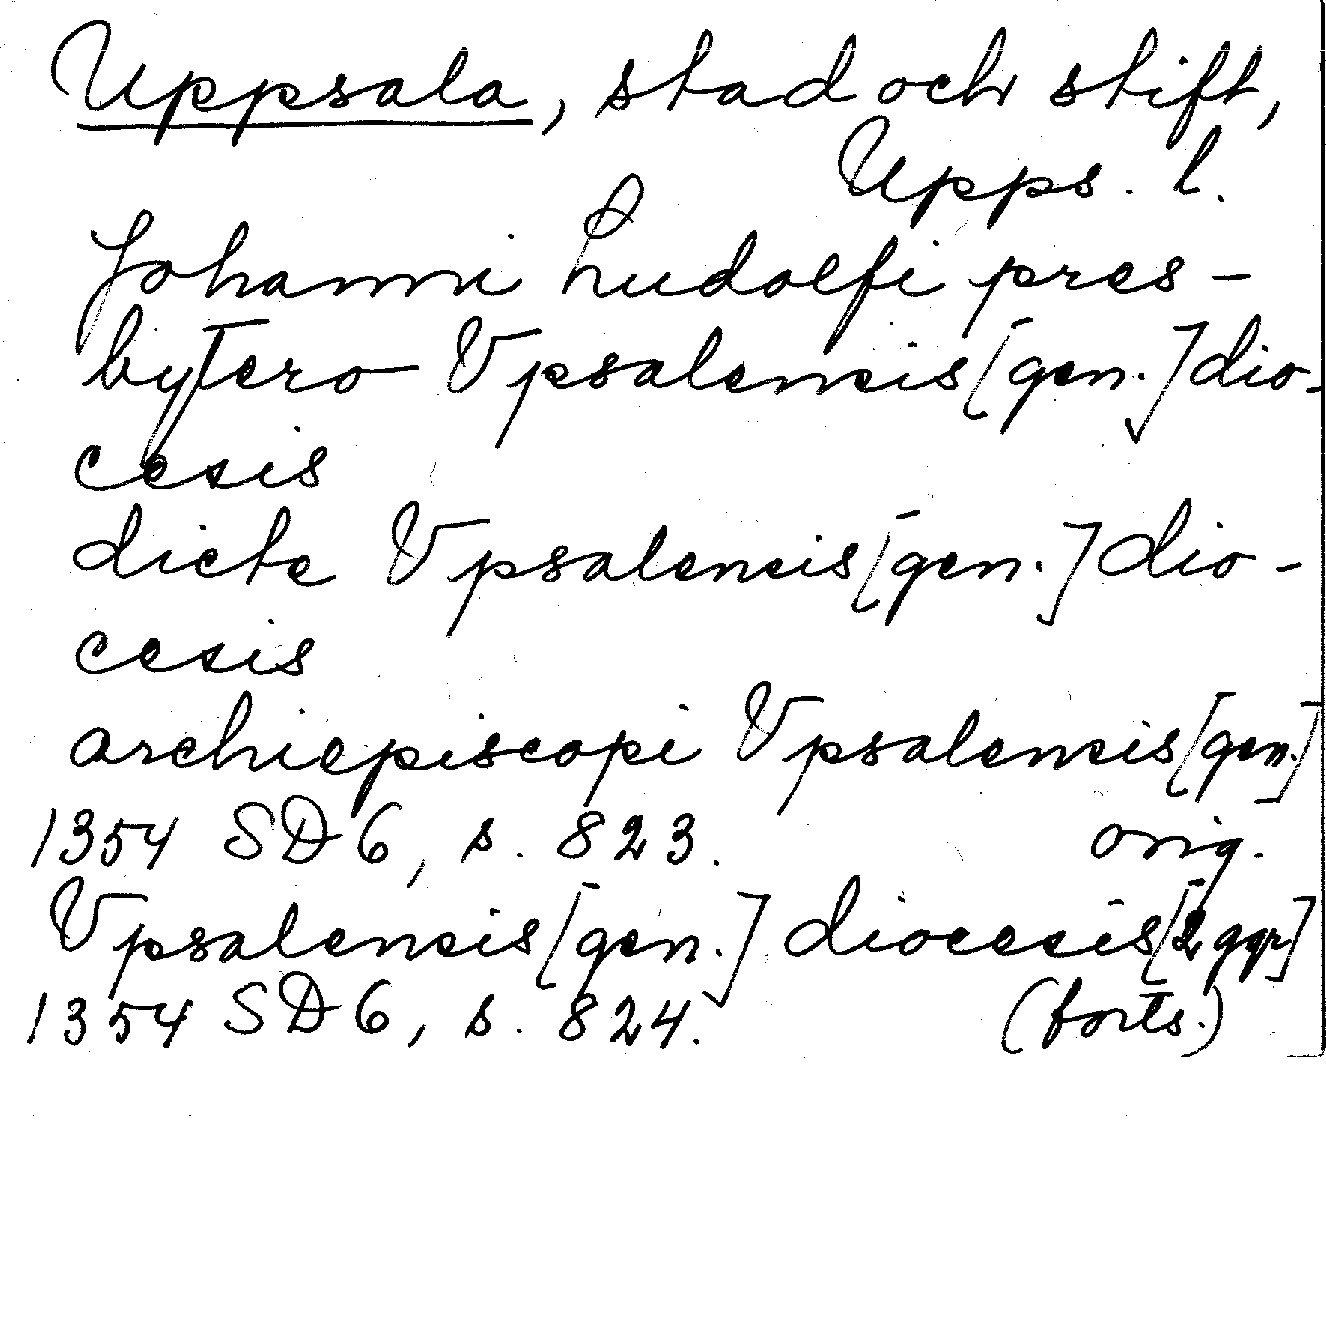 Uppsala, stad och stift,
Upps. l.
Johanni Ludolfi pres-
bytero Vpsalencis [gen.] dio-
cesis
dicte Vpsalencis [gen.] dio-
cesis
archiepiscopi Vpsalencis [gen.]
1354 SD 6, s. 823. orig.
Vpsalencis [gen.] diocecis [2 ggr]
1354 SD 6, s. 824. (forts.)